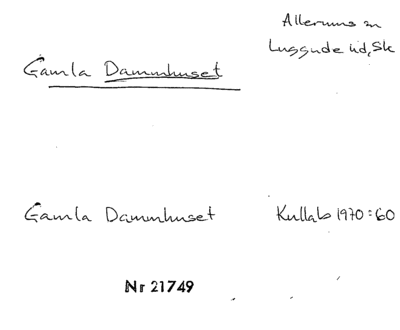 Allerums sn
Luggude hd, Sk
Gamla Dammhuset
Gamla Dammhuset Kullab 1970:60
Nr 21749